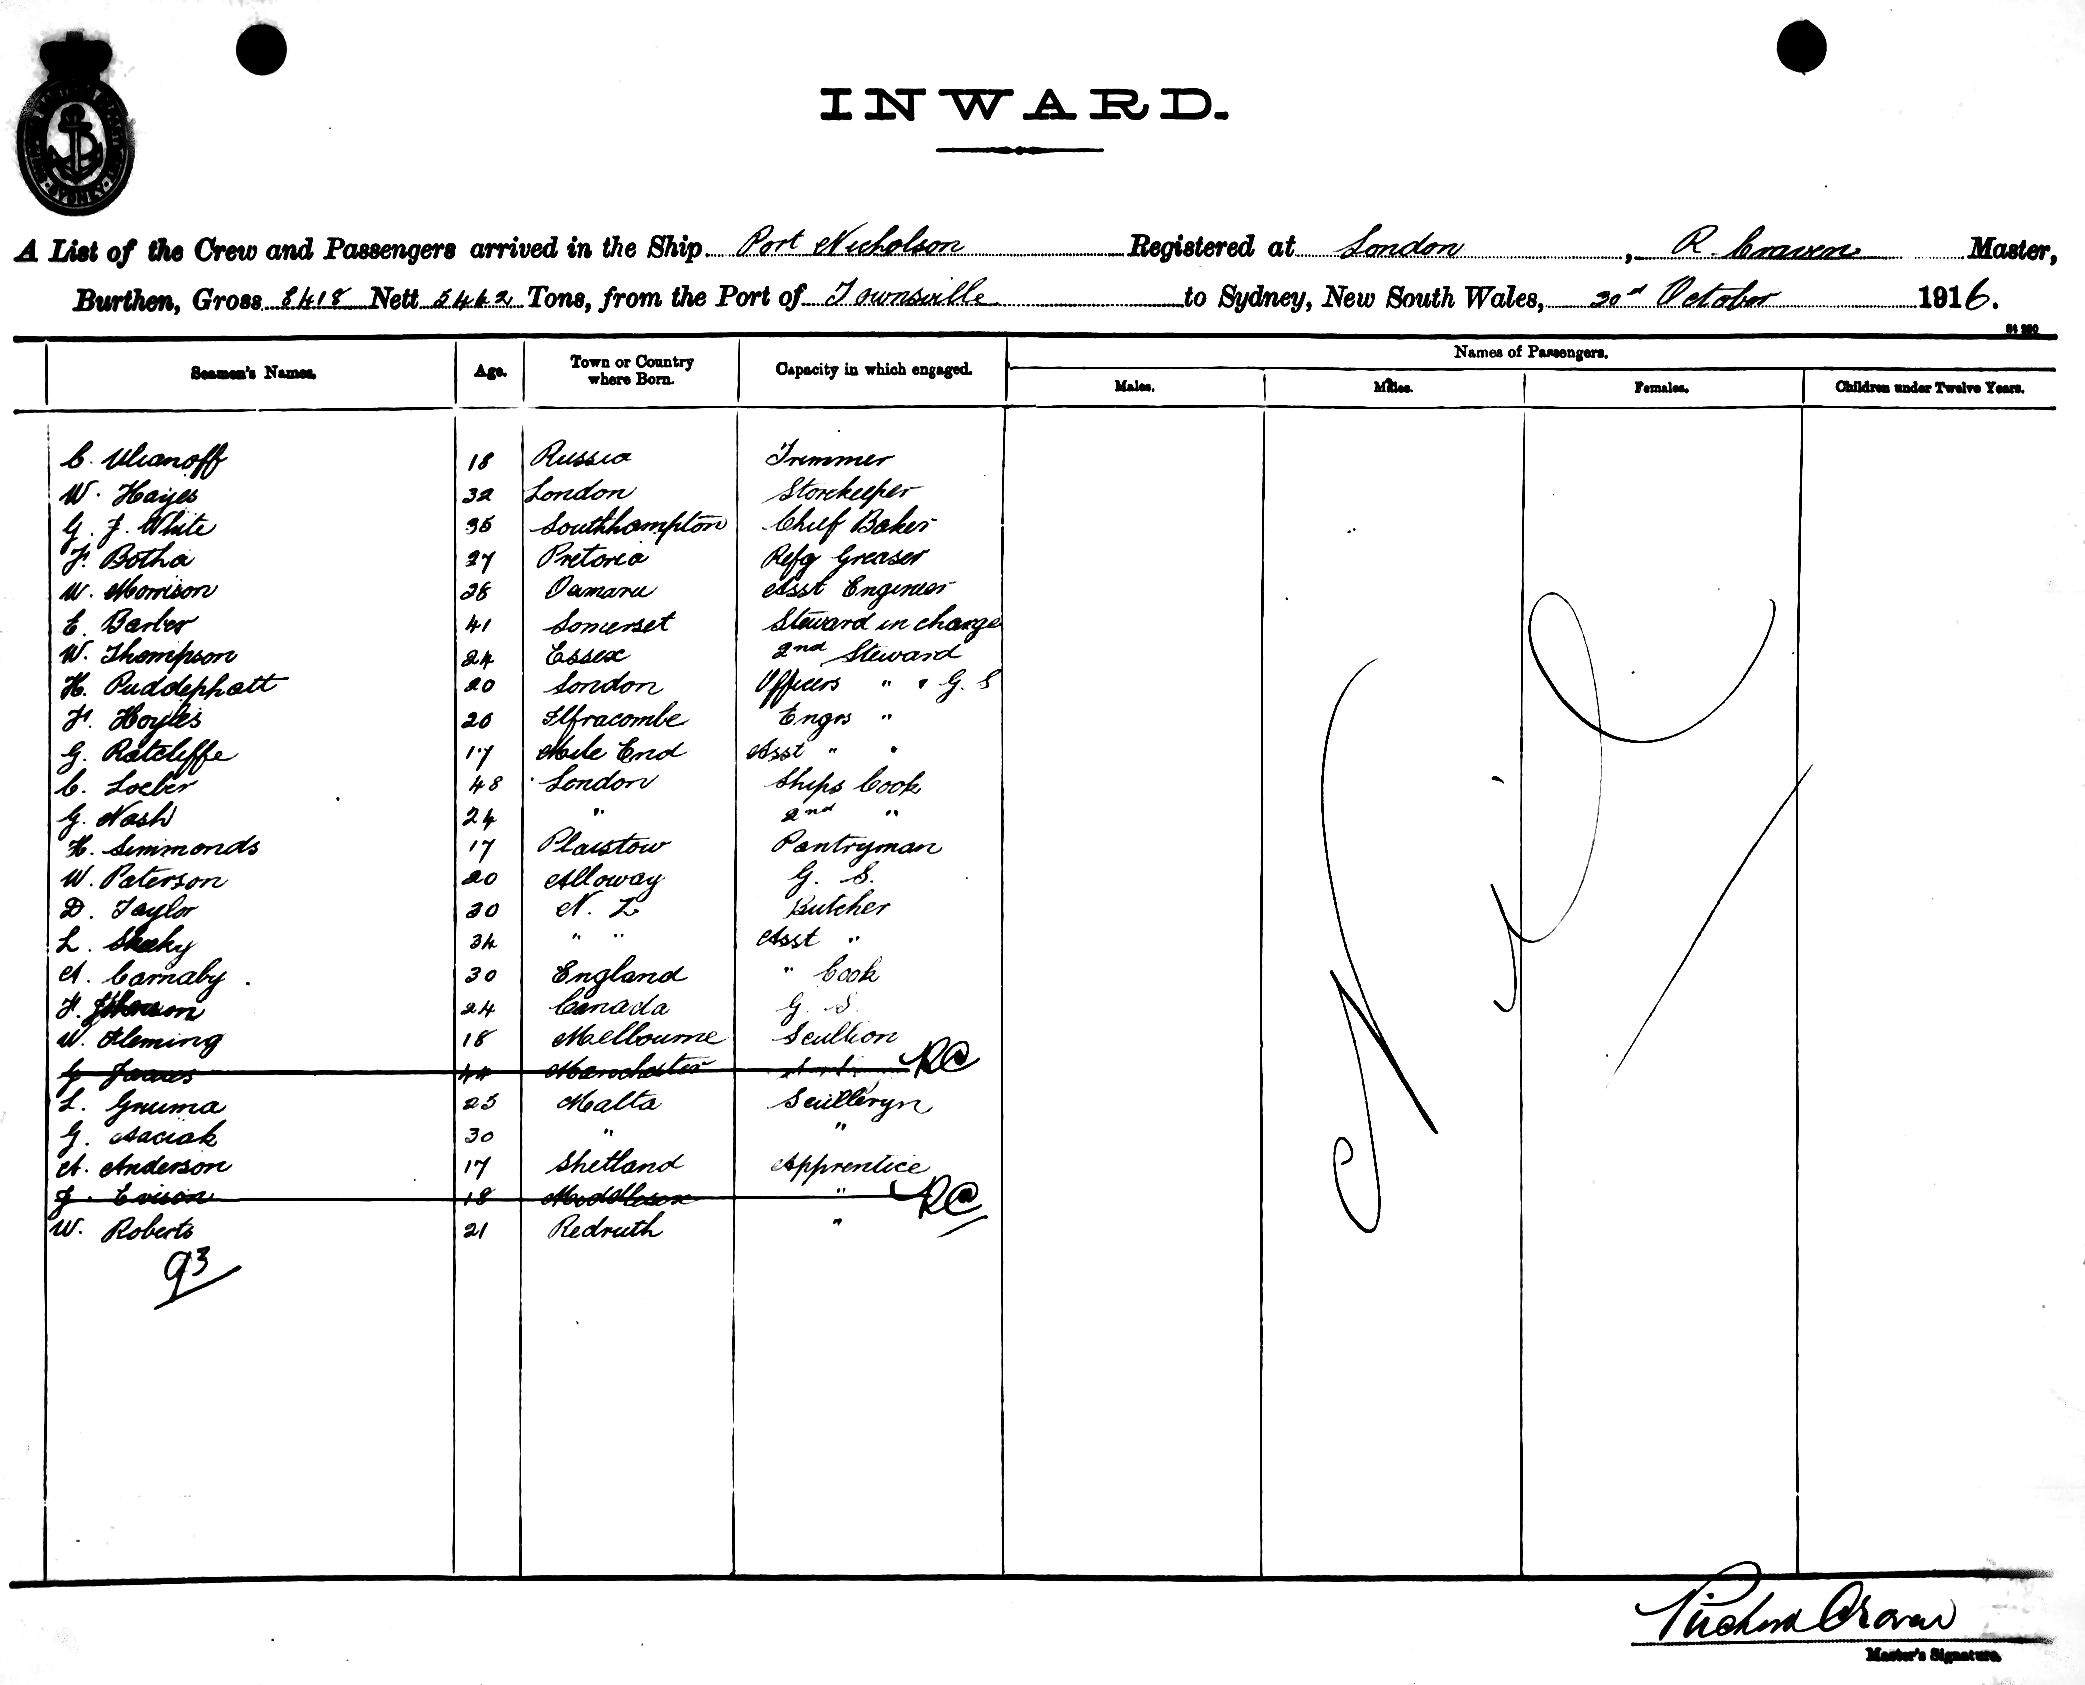 INWARD.
A List of the Crew and Passengers arrived in the Ship Port Nicholson Registered at London, R. Craven Master,
Burthen, Gross 8418 Nett 5462 Tons, from the Port of Townsville to Sydney, New South Wales, 30th October 1916.
Seamen's Names. Age. Town or Country where Born. Capacity in which engaged. Names of Passengers.
Males. Males. Females. Children under Twelve Years.
C. Ulianoff 18 Russia Trimmer
W. Hayes 32 London Storekeeper
G. J. White 35 Southhampton Chief Baker
F. Botha 27 Pretoria Refg Greaser
W. Morrison 28 Oamaru Asst Engineer
E. Barber 41 Somerset Steward in charge
W. Thompson 24 Essex 2nd Steward
H. Puddephatt 20 London Officers " " G. S
F. Hoyles 20 Ilfracombe Engrs "
G. Ratcliffe 17 Mile End Asst " "
C. Loeber 48 London Ships Cook
G. Nash 24 " 2nd "
H. Simmonds 17 Plaistow Pantryman
W. Paterson 20 Alloway G. S.
D. Taylor 30 N. Z Butcher
L. Sheehy 34 " " Asst "
A. Carnaby 30 England " Cook
F. 24 Canada G. S.
W. Fleming 18 Melbourne Scullion
G 44 Manchester RC
L. Gruma 25 Malta Sculleryn
G. 30 " "
A. Anderson 17 Shetland Apprentice
J. Evison 18 " RC
W. Roberts 21 Redruth "
93
Nil
Richard Craven
Master's Signature.